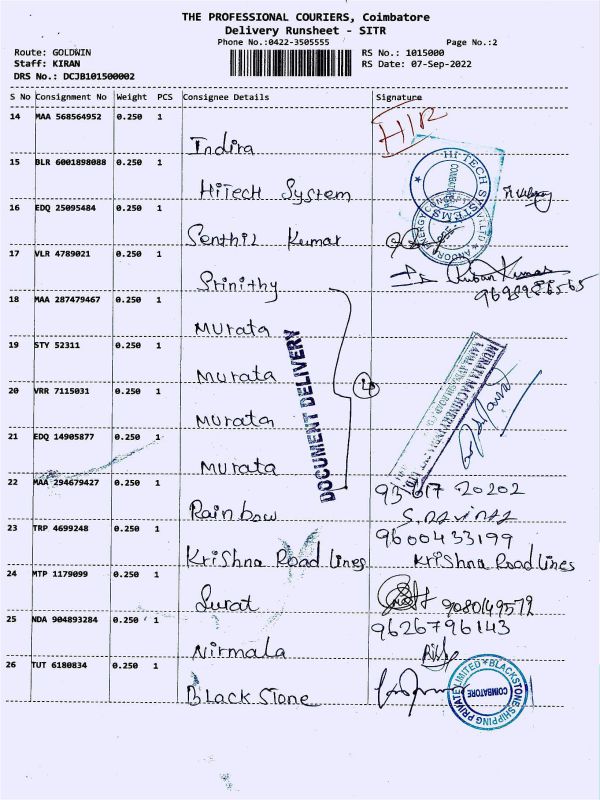 THE PROFESSIONAL COURIERS, Coimbatore
Delivery Runsheet - SITR
Phone No.:0422-3505555 Page No.:2
Route: GOLDWIN RS No.: 1015000
Staff: KIRAN RS Date: 07-Sep-2022
DRS No.: DCJB101500002
S No Consignment No Weight PCS Consignee Details Signature
14 MAA 568564952 0.250 1
Indira
15 BLR 6001898088 0.250 1
HiTech System
HI-TECH SYSTEMS
COIMBATORE
16 EDQ 25095484 0.250 1
Senthil Kumar
17 VLR 4789021 0.250 1
Srinithy
18 MAA 287479467 0.250 1
Murata
19 STY 52311 0.250 1
Murata
20 VRR 7115031 0.250 1
Murata
21 EDQ 14905877 0.250 1
Murata
DOCUMENT DELIVERY
4
MURATA MACHINERY INDIA PVT. LTD.
22 MAA 294679427 0.250 1
93617 20202
Rainbow
23 TRP 4699248 0.250 1
9600433199
Krishna Road Lines Krishna Road Lines
24 MTP 1179099 0.250 1
Surat 9080149572
25 NDA 904893284 0.250 1
9626796143
Nirmala
26 TUT 6180834 0.250 1
Black Stone
BLACKSTONE SHIPPING PRIVATE LIMITED
COIMBATORE